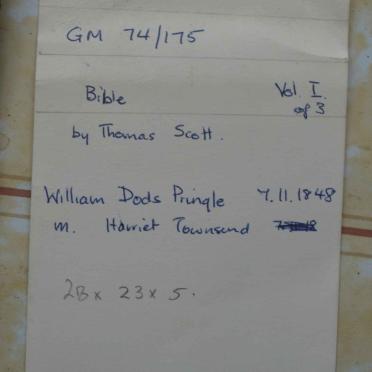 GM 74/175
Bible Vol. I.
of 3
by Thomas Scott.
William Dods Pringle 7.11.1848
m. Harriet Townsend
28 x 23 x 5.